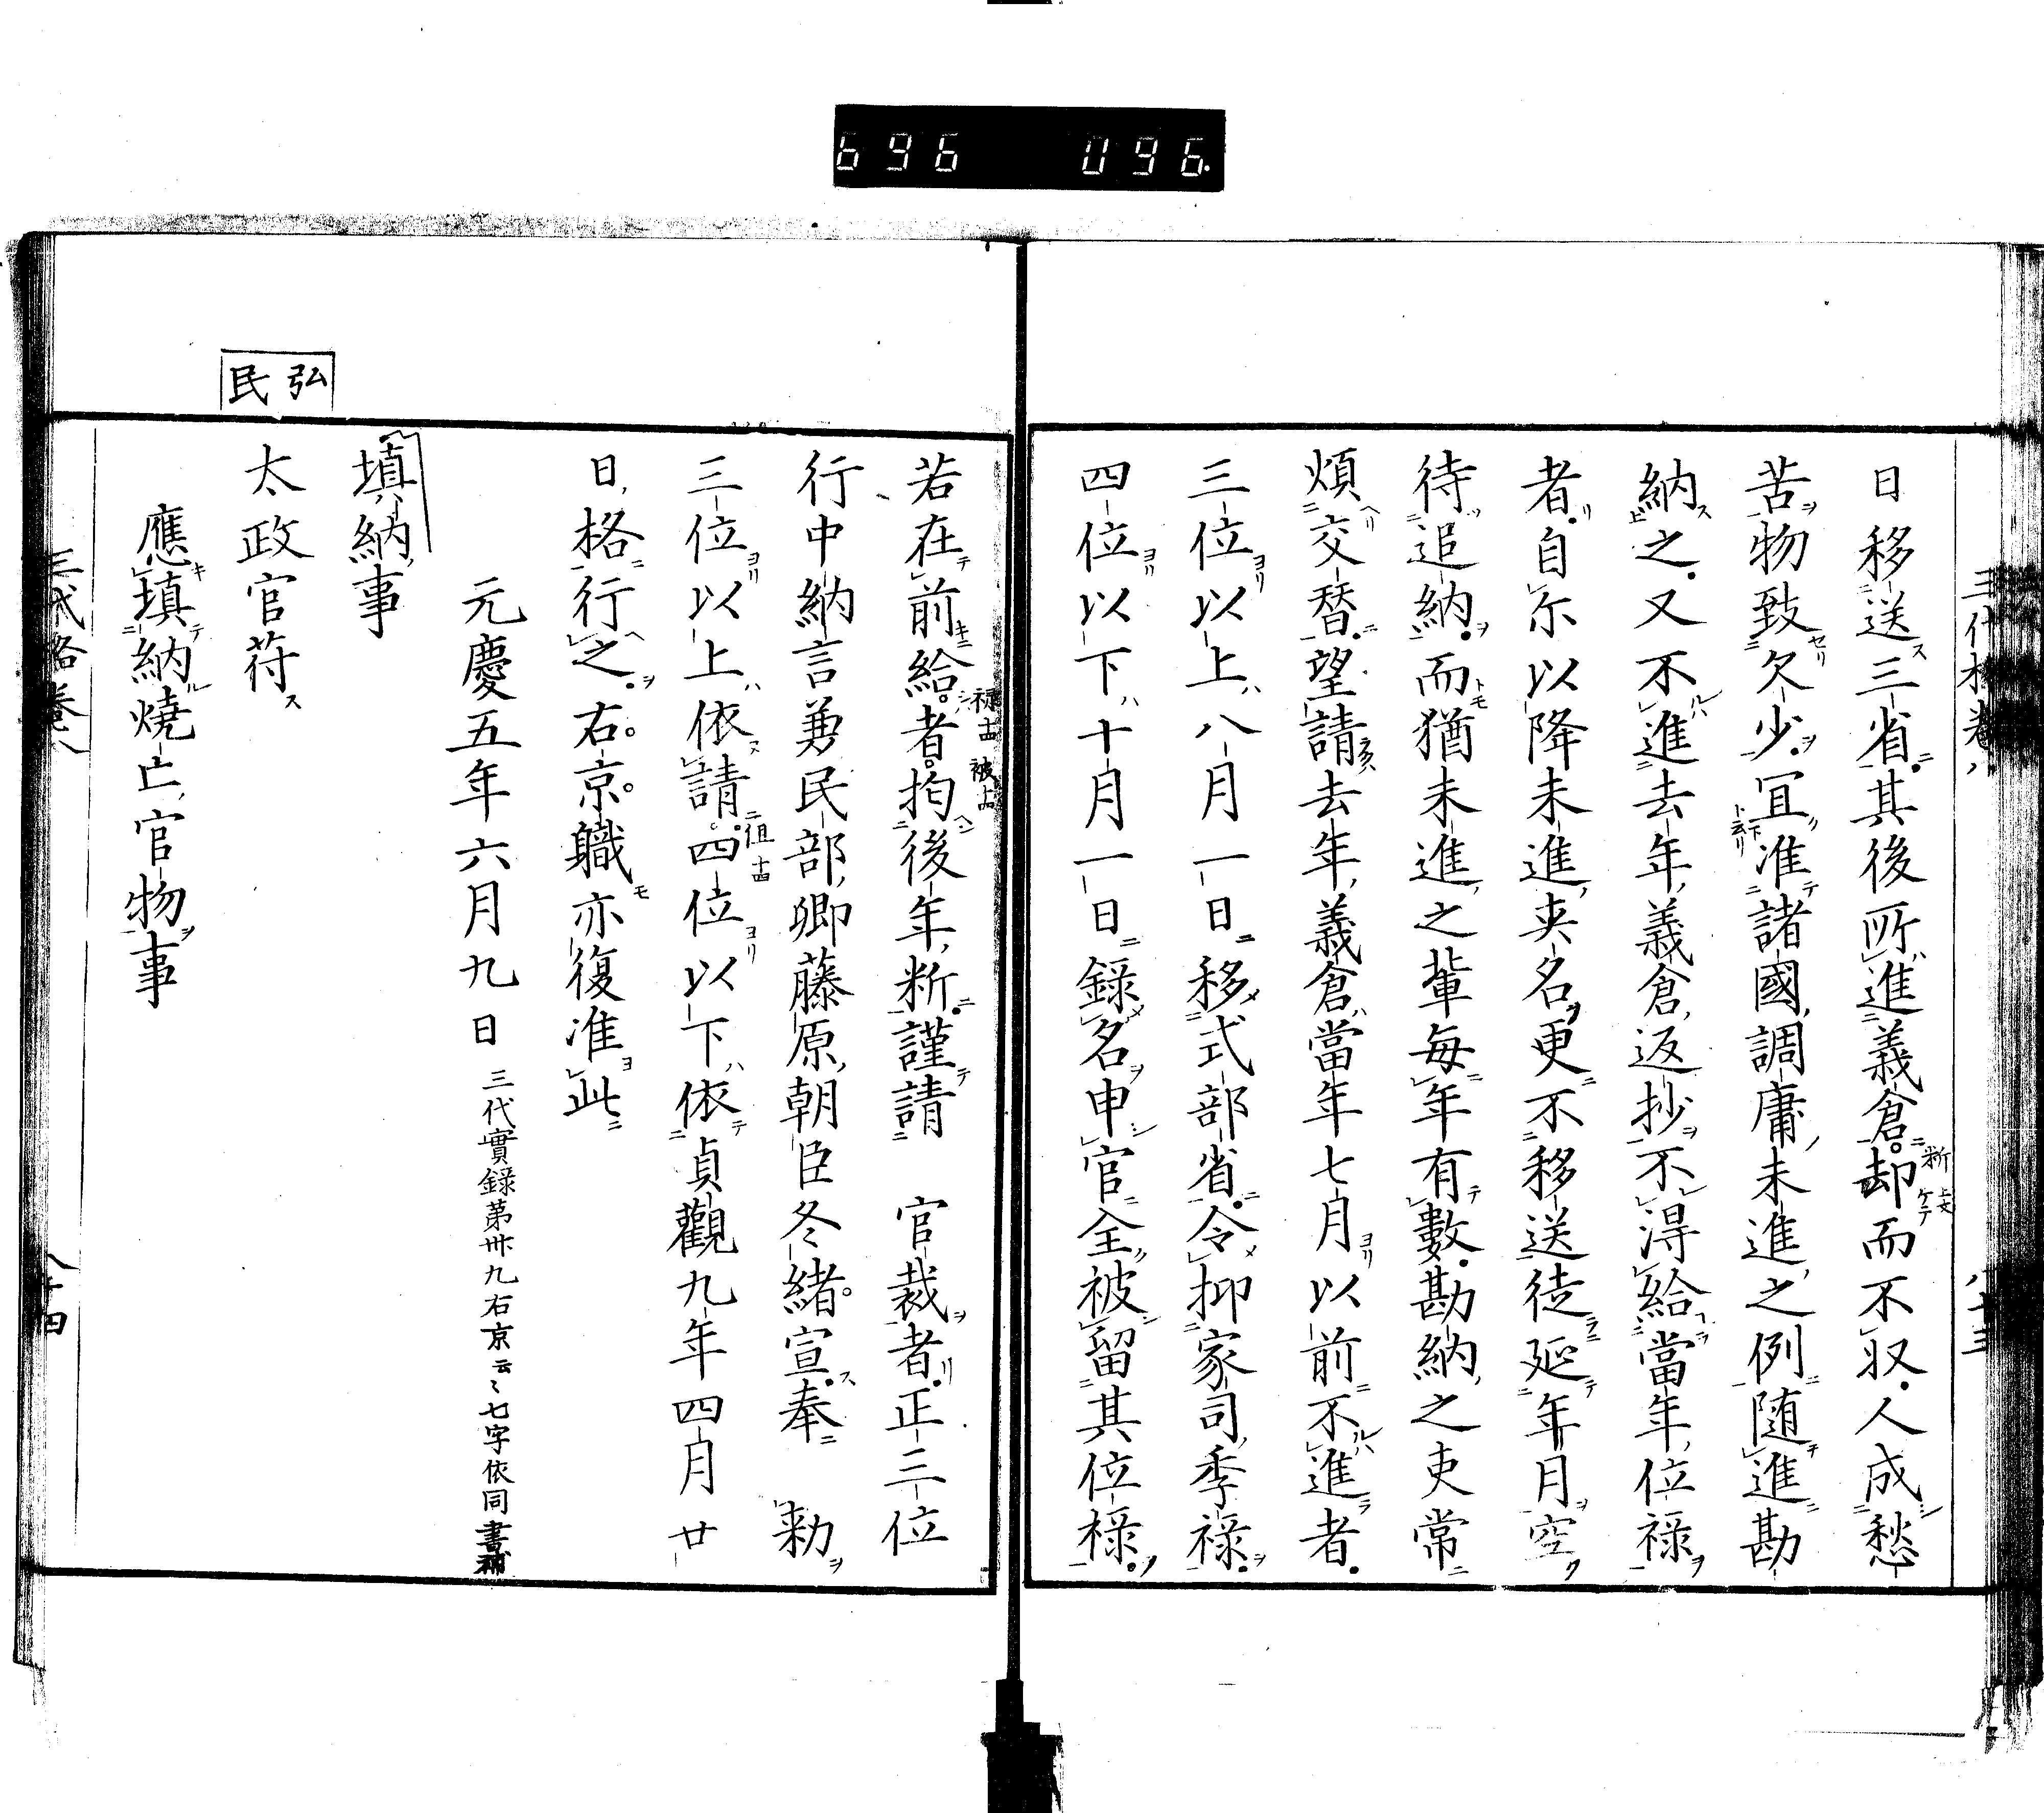 696 096.
三代格卷八
日移送三省其後所進義倉却而不収人成愁
苦物致欠少冝准諸國調庸未進之例随進勘
納之又不進去年義倉返抄不得給當年位禄
者自尓以降未進夾名更不移送徒延年月空
待追納而猶未進之輩毎年有數勘納之吏常
煩交替望請去年義倉當年七月以前不進者
三位以上八月一日移式部省令抑家司季禄
四位以下十月一日録名申官全被留其位禄
若在前給者拘後年断謹請 官裁者正三位
行中納言兼民部卿藤原朝臣冬緒宣奉 勅
三位以上依請四位以下依貞觀九年四月廿
日格行之右京職亦復准此
元慶五年六月九日 三代實録第卅九右京云〻七字依同書補
填納事
弘民
太政官符ス
應填納燒亡官物事
三代格卷八 八十四